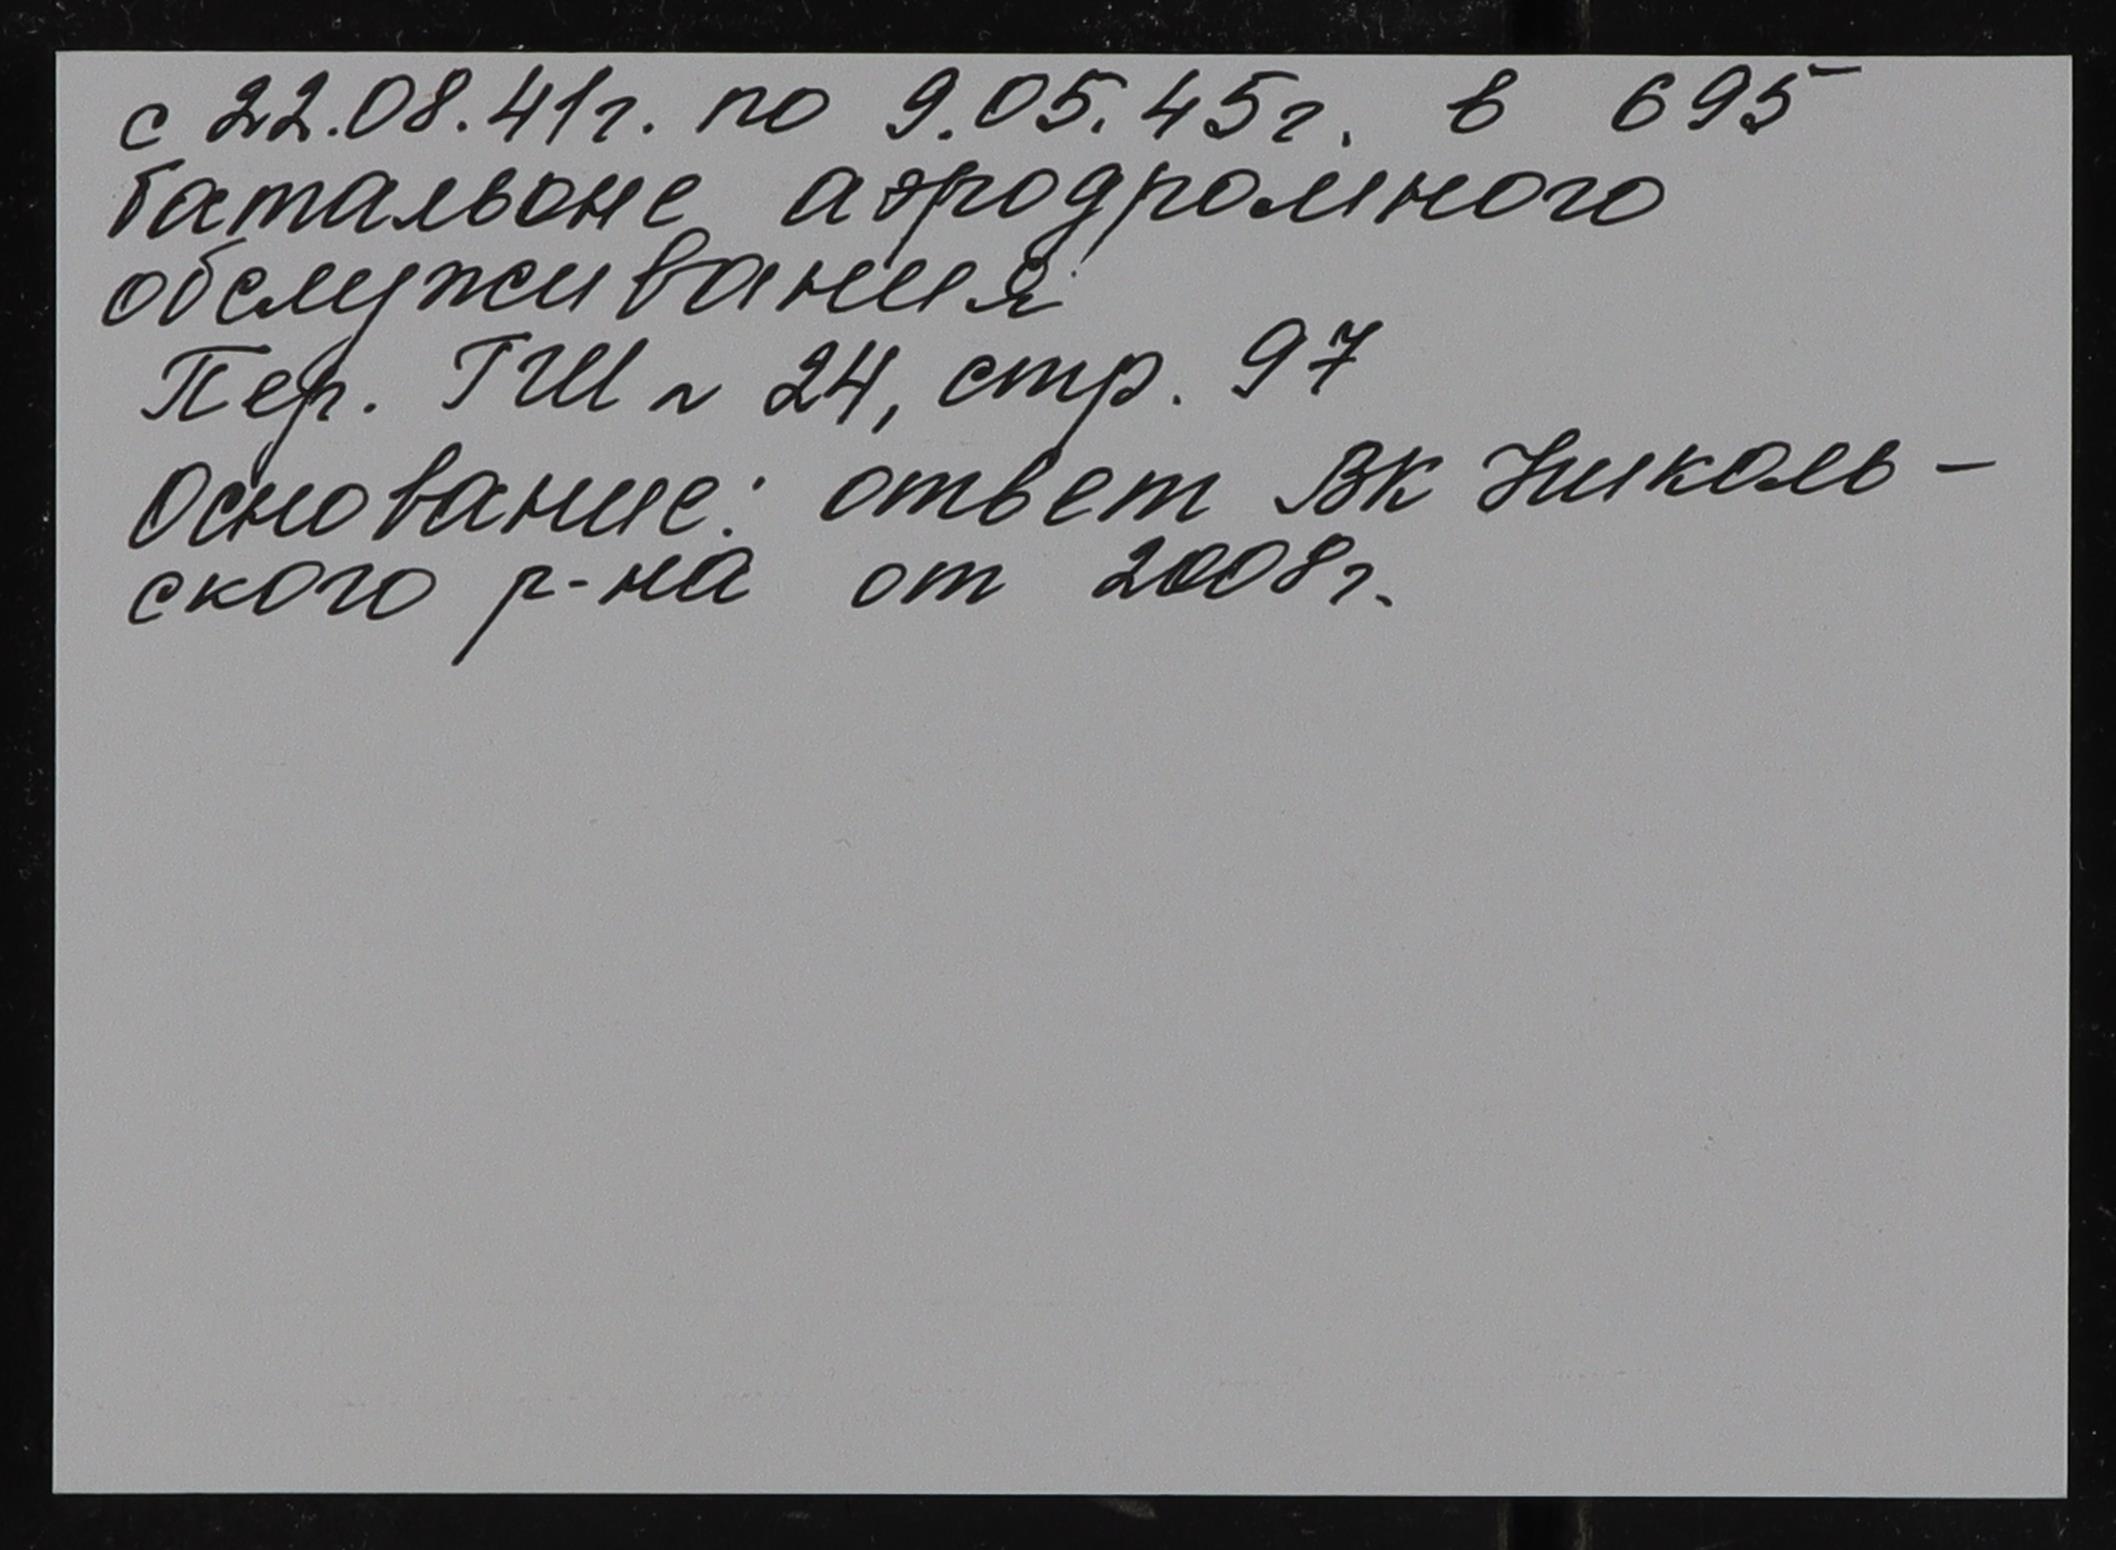 с 22.08.41г. по 9.05.45г. в 695
батальоне аэродромного
обслуживания
Пер. ГШ ~ 24, стр. 97
Основание: ответ ВК Николь-
ского р-на от 2008г.